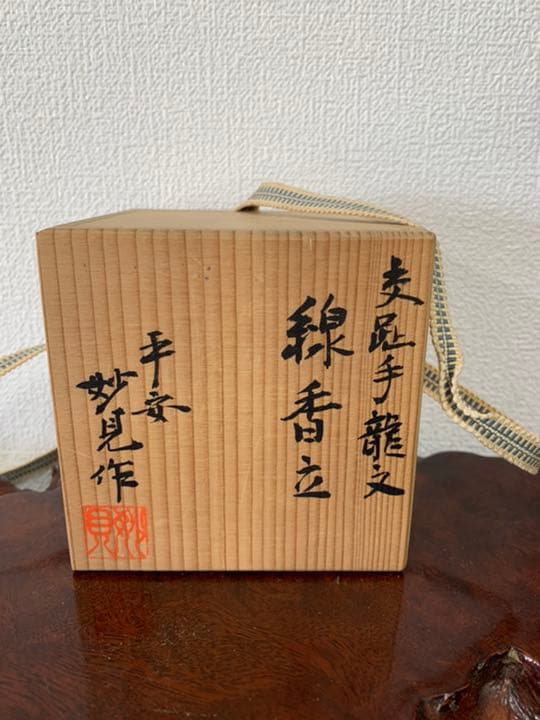 交趾手龍文
線香立
平安
妙見作
妙見